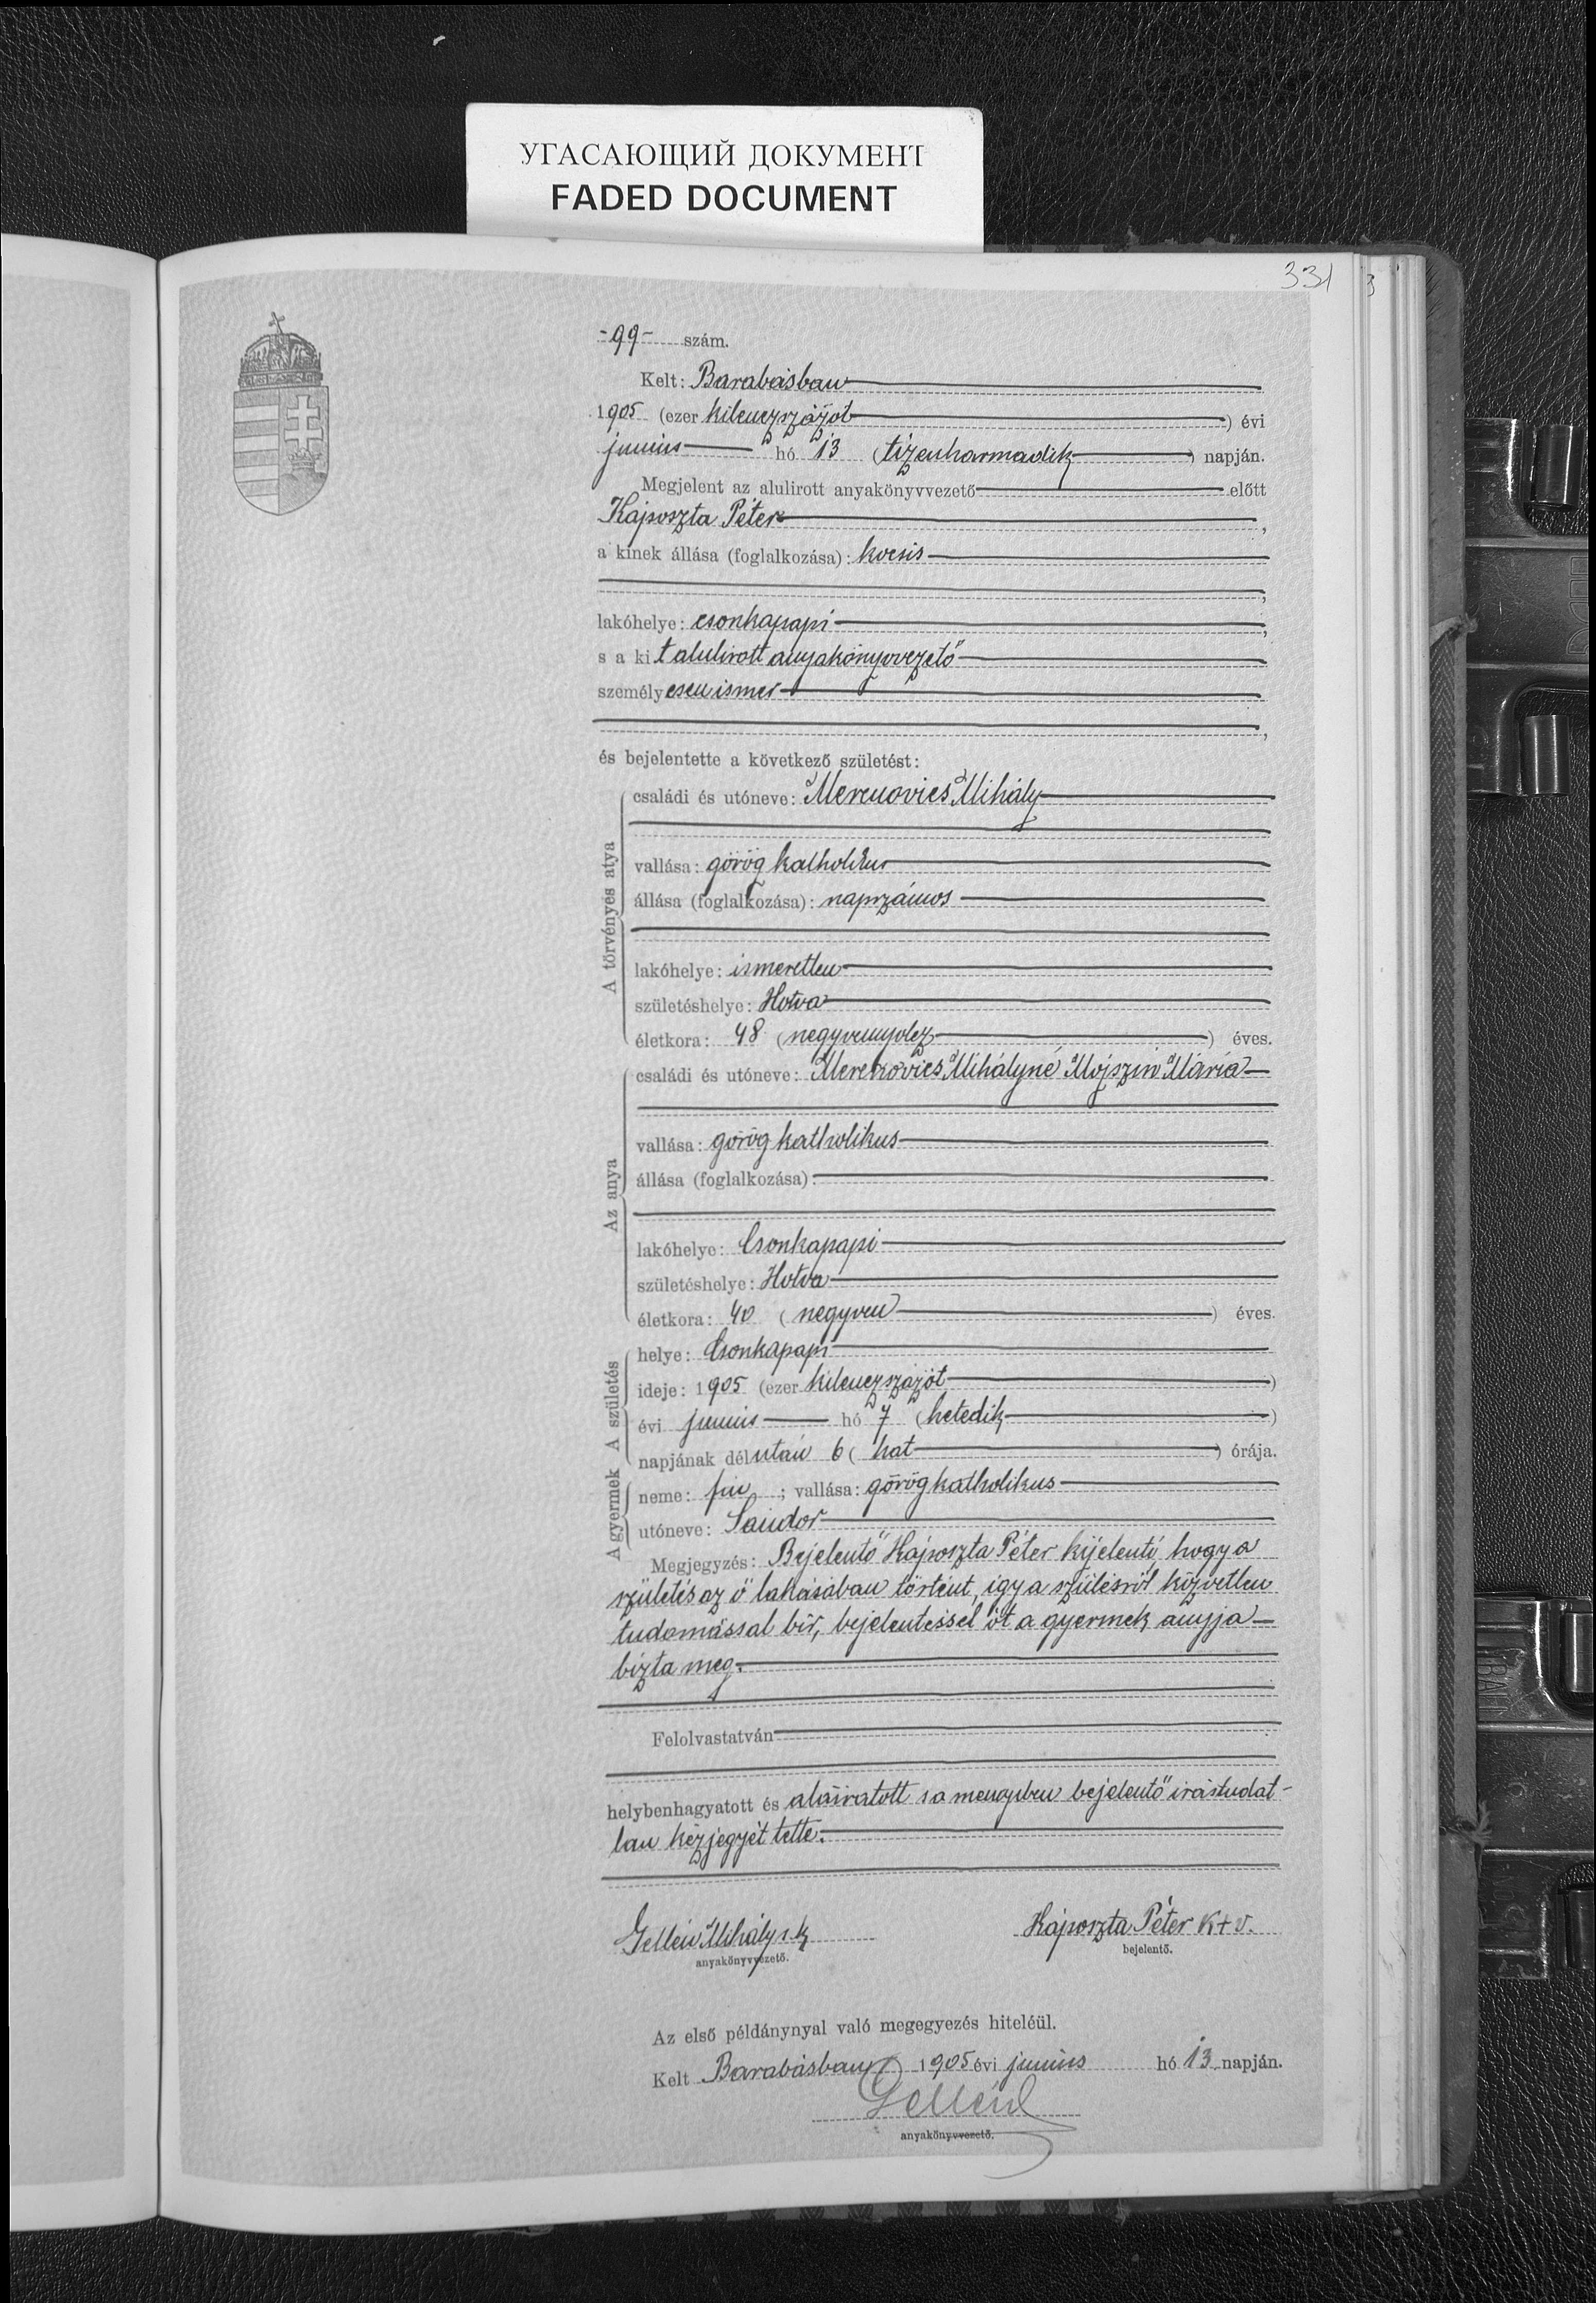 УГАСАЮЩИЙ ДОКУМЕНТ
FADED DOCUMENT
331
3
-99- szám.
Kelt: Barabásban
1905 (ezer kilenczszázöt) évi
junius hó 13 (tizenharmadik) napján.
Megjelent az alulirott anyakönyvvezető előtt
Káposzta Péter,
a kinek állása (foglalkozása): kocsis
,
lakóhelye: csonkapapi,
s a kit alulirott anyakönyvvezető
személyesen ismer
,
és bejelentette a következő születést:
A törvényes atya
családi és utóneve: Merenovics Mihály
vallása: görög katholikus
állása (foglalkozása): napszámos
lakóhelye: ismeretlen
születéshelye: Hotva
életkora: 48 (negyvennyolcz) éves.
Az anya
családi és utóneve: Merenovics Mihályné Mojszin Mária
vallása: görög katholikus
állása (foglalkozása):
lakóhelye: Csonkapapi
születéshelye: Hotva
életkora: 40 (negyven) éves.
A születés
helye: Csonkapapi
ideje: 1905 (ezer kilenczszázöt)
évi junius hó 7 (hetedik)
napjának délután 6 (hat) órája.
A gyermek
neme: fiu; vallása: görög katholikus
utóneve: Sándor
Megjegyzés: Bejelentő Káposzta Péter kijelenti, hogy a
születés az ő lakásában történt, igy a szülésről közvetlen
tudomással bir, bejelentéssel őt a gyermek anyja
bizta meg.
Felolvastatván
helybenhagyatott és aláiratott s a mennyiben bejelentő irástudat-
lan kézjegyét tette.
Gellén Mihály s. k. Káposzta Péter K+v.
anyakönyvvezető. bejelentő.
Az első példánynyal való megegyezés hiteléül.
Kelt Barabásban 1905 évi junius hó 13 napján.
Gellén
anyakönyvvezető.